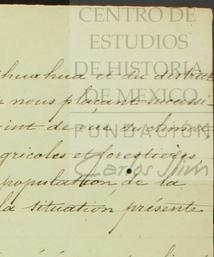 CENTRO DE
ESTUDIOS
DE HISTORIA
DE MEXICO
FUNDACIÓN
Carlos Slim
huahua et du district
nous plaçant successi
int de vue du climat
gricoles et forestières
population de la
la situation présente